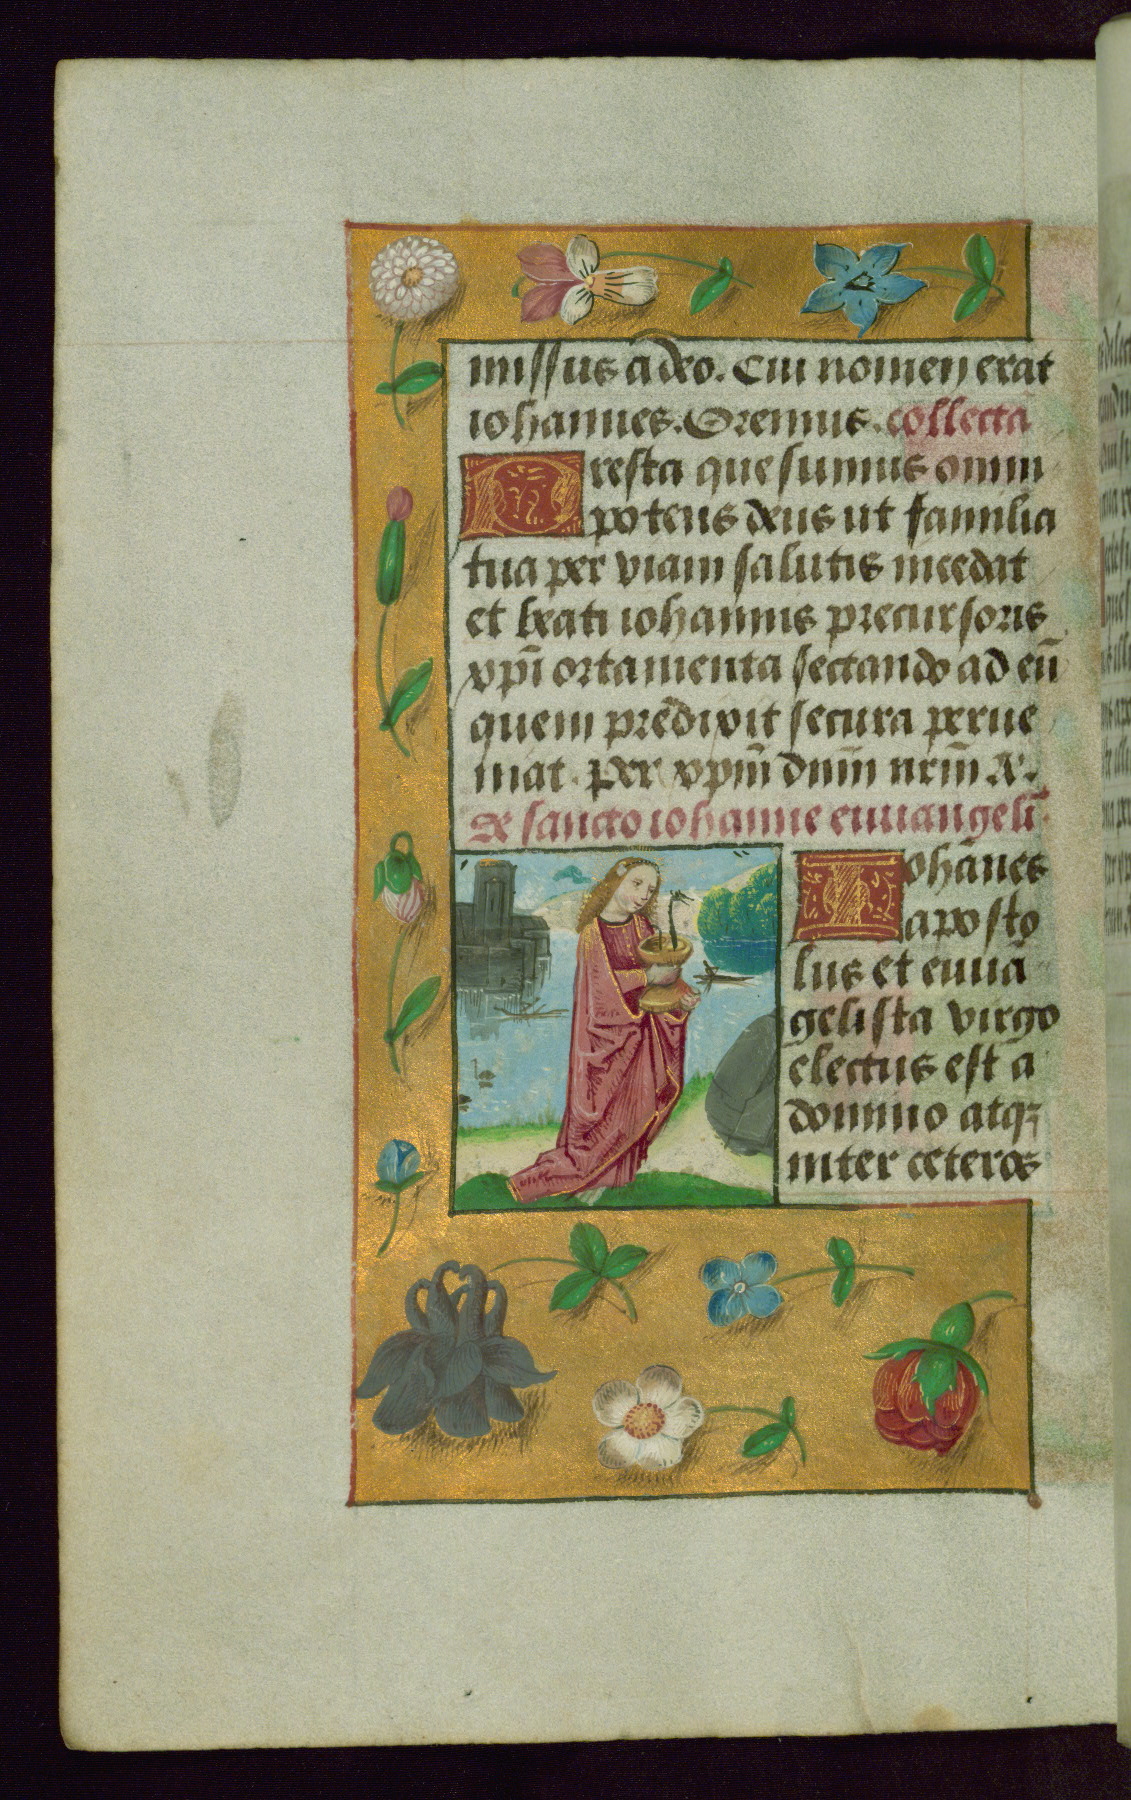 missus a deo. Cui nomen erat
iohannes. Oremus. collecta
Presta quesumus omni
potens deus ut familia
tua per viam salutis incedat
et beati iohannis precursoris
xpi ortamenta sectando ad eū
quem predixit secura perue
niat. per xpm̄ dnm̄ nrm̄ A.
De sancto iohanne euuangeli
Iohānes
aposto
lus et euuā
gelista virgo
electus est a
domino atq
inter ceteros